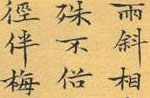 雨斜相
殊不俗
徑伴梅